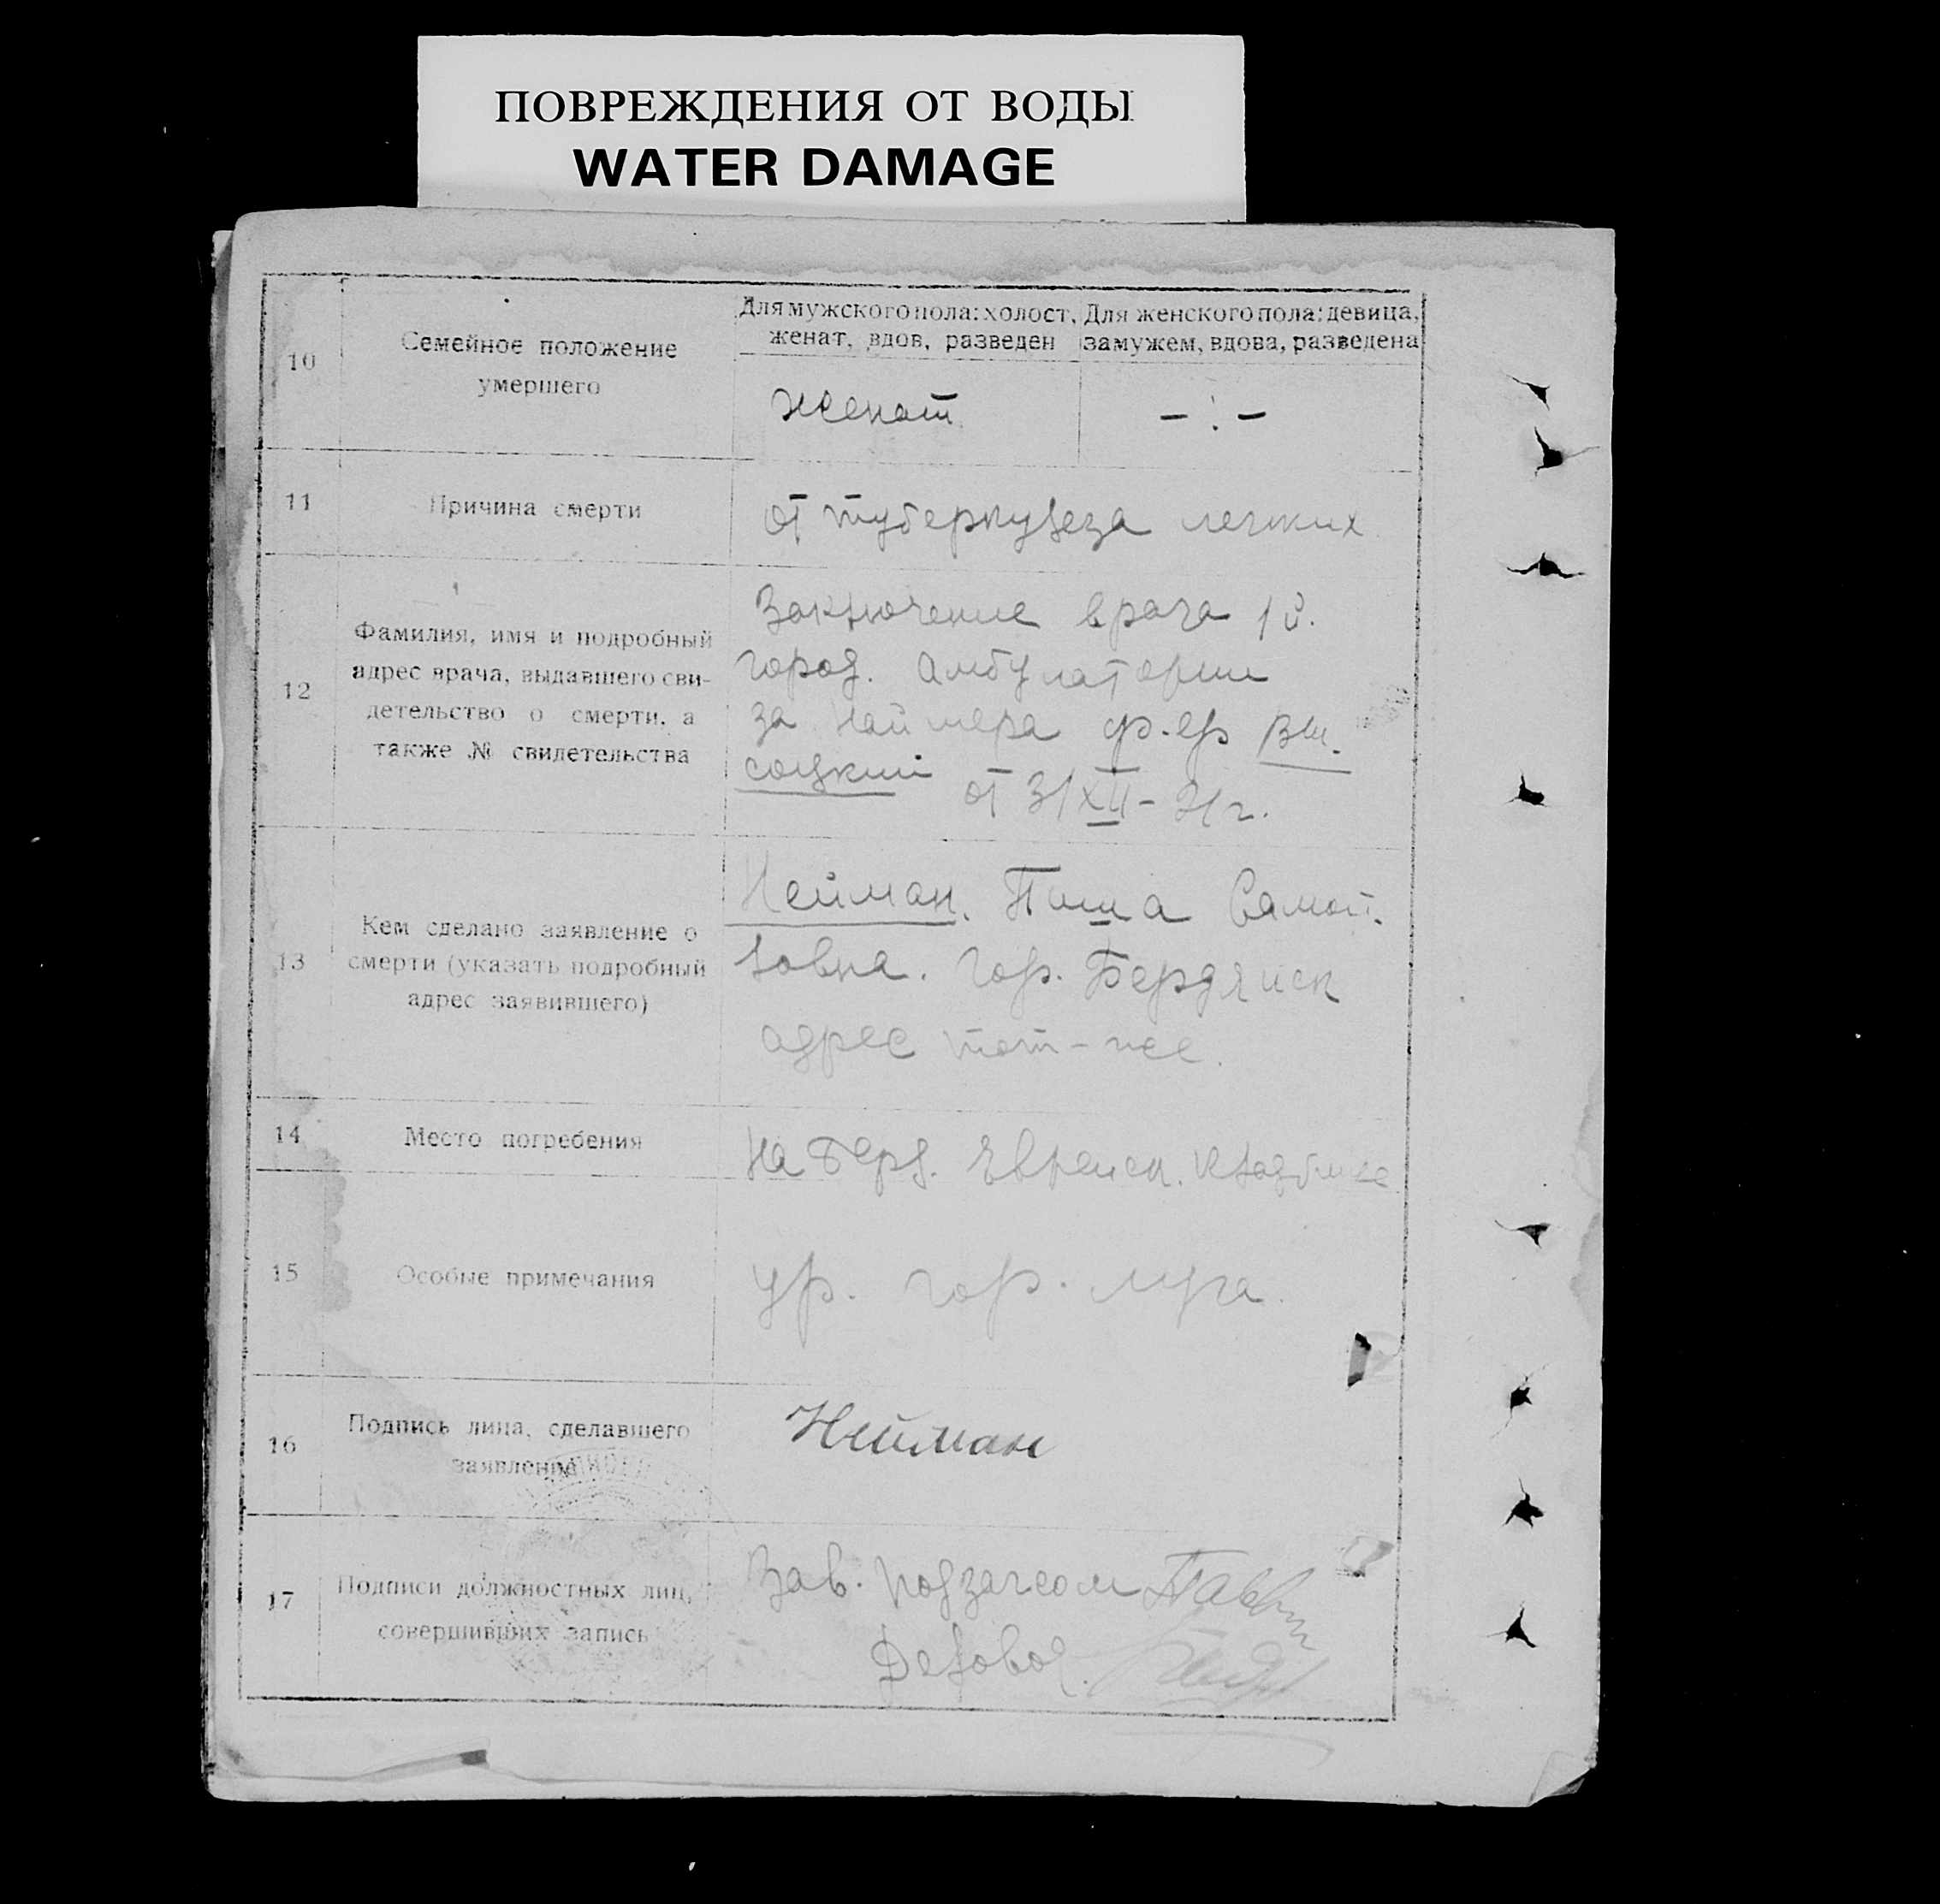 ПОВРЕЖДЕНИЯ ОТ ВОДЫ
WATER DAMAGE
10
Семейное положение
умершего
Для мужского пола: холост,
женат, вдов, разведен
Для женского пола: девица,
замужем, вдова, разведена
женат
– : –
11
Причина смерти
от туберкулеза легких
12
Фамилия, имя и подробный
адрес врача, выдавшего сви-
детельство о смерти, а
также № свидетельства
Заключение врача 1й.
город. Амбулатории
за
соцкий от 31/XII–21г.
13
Кем сделано заявление о
смерти (указать подробный
адрес заявившего)
Нейман.
ловна. гор. Бердянск
адрес тот-же.
14
Место погребения
на берд. Еврейск. кладбище
15
Особые примечания
ур. гор.
16
Подпись лица, сделавшего
заявление
Нейман
17
Подписи должностных лиц,
совершивших запись
Зав. подзагсом
Деловод.